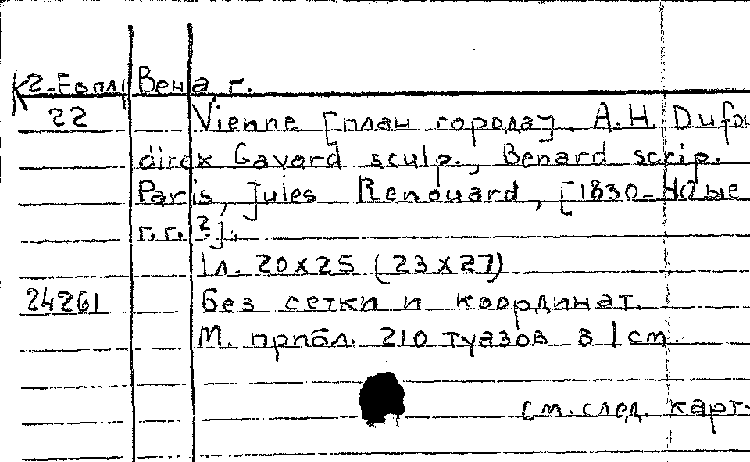 К2-Евпл Вена, г.
22 Vienne [план города]. A.H. Dufou
direx Gavard sculp., Benard scrip.
Paris, Jules Renouard, [1830-тые
г.г.?].
1л. 20x25 (23x27)
24261 без сетки и координат.
М. прибл. 210 туазов в 1 см
см. след. карт.